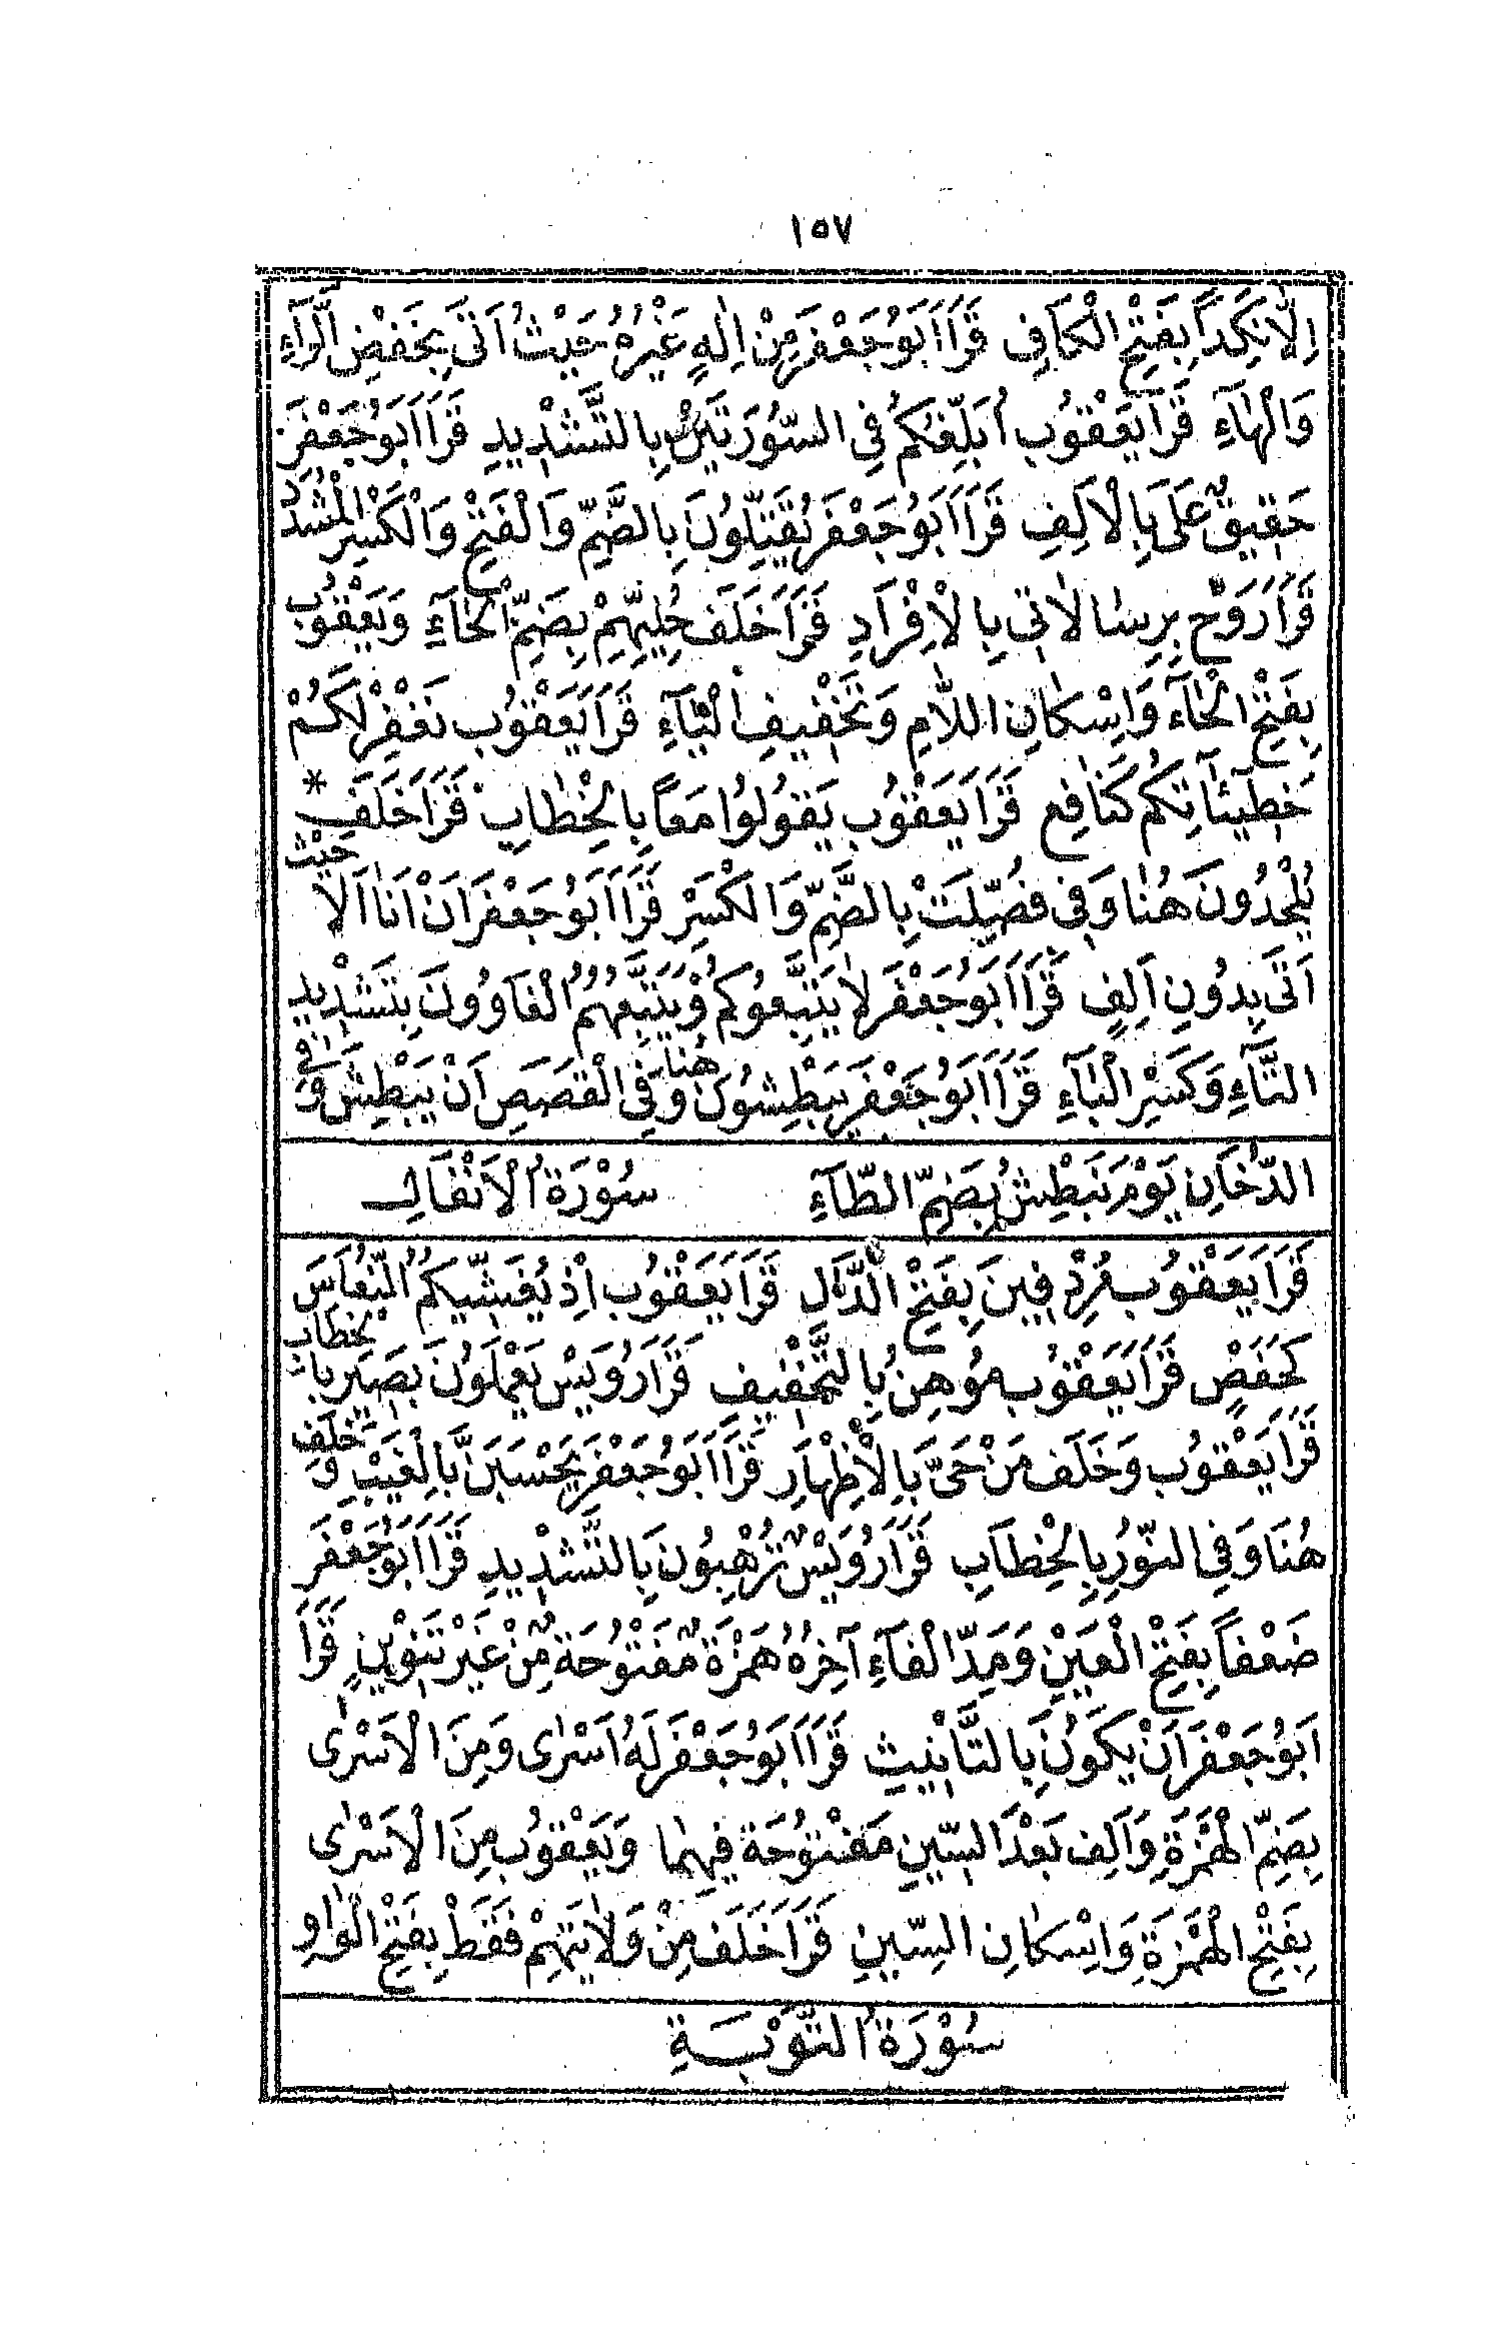 ١٥٧
اِلَّا نَكَداً بِفَتْحِ الْكَافِ قَرَأَ اَبُو جَعْفَرَ مِنْ اِلٰهٍ غَيْرُهُ حَيْثُ اَتٰى بِخَفْضِ الرَّاءِ
وَالْهَاءِ قَرَأَ يَعْقُوبُ اُبَلِّغُكُمْ فِى السُّورَتَيْنِ بِالتَّشْدِيدِ قَرَأَ اَبُو جَعْفَرَ
حَقِيقٌ عَلٰى بِالْاَلِفِ قَرَأَ اَبُو جَعْفَرَ يُقَتِّلُونَ بِالضَّمِّ وَالْفَتْحِ وَالْكَسْرِ الْمُشَدَّدِ
قَرَأَ رَوْحٌ بِرِسَالَاتِى بِالْاِفْرَادِ قَرَأَ خَلَف حُلِيِّهِمْ بِضَمِّ الْحَاءِ وَيَعْقُوبُ
بِفَتْحِ الْحَاءِ وَاِسْكَانِ اللَّامِ وَتَخْفِيفِ الْيَاءِ قَرَأَ يَعْقُوبُ نَغْفِرْ لَكُمْ
خَطِيئَاتِكُمْ كَنَافِعٍ قَرَأَ يَعْقُوبُ يَقُولُوا مَعاً بِالْخِطَابِ قَرَأَ خَلَفَ *
يُلْحِدُونَ هُنَا وَفِى فُصِّلَتْ بِالضَّمِّ وَالْكَسْرِ قَرَأَ اَبُو جَعْفَرَ اَنْ اَنَا اَلَا حَيْثُ
اَتٰى بِدُونِ اَلِفٍ قَرَأَ اَبُو جَعْفَرَ لَا يَتَّبِعُوكُمْ وَيَتَّبِعُهُمُ الْغَاوُونَ بِتَشْدِيدِ
التَّاءِ وَكَسْرِ الْبَاءِ قَرَأَ اَبُو جَعْفَرَ يَبْطِشُونَ هُنَا وَفِى الْقَصَصِ اَنْ يَبْطِشَ وَفِى
الدُّخَانِ يَوْمَ نَبْطِشُ بِضَمِّ الطَّاءِ سُوْرَةُ الْاَنْفَالِ
قَرَأَ يَعْقُوبُ مُرْدَفِينَ بِفَتْحِ الدَّالِ قَرَأَ يَعْقُوبُ اِذْ يُغَشِّيكُمُ النُّعَاسَ
كَحَفْصٍ قَرَأَ يَعْقُوبُ مُوهِنُ بِالتَّخْفِيفِ قَرَأَ رُوَيْسُ يَعْمَلُونَ بَصِير بِالْخِطَابِ
قَرَأَ يَعْقُوبُ وَخَلَف مَنْ حَىَّ بِالْاِظْهَارِ قَرَأَ اَبُو جَعْفَرَ يَحْسَبَنَّ بِالْغَيْبِ وَخَلَف
هُنَا وَفِى النُّورِ بِالْخِطَابِ قَرَأَ رُوَيْسٌ تُرَهِّبُونَ بِالتَّشْدِيدِ قَرَأَ اَبُو جَعْفَرَ
ضَعْفاً بِفَتْحِ الْعَيْنِ وَمَدِّ الْفَاءِ آخِرُهُ هَمْزَةٌ مَفْتُوحَةٌ مِنْ غَيْرِ تَنْوِينٍ قَرَأَ
اَبُو جَعْفَرَ اَنْ يَكُونَ بِالتَّأْنِيثِ قَرَأَ اَبُو جَعْفَرَ لَهُ اَسْرٰى وَمِنَ الْاَسْرٰى
بِضَمِّ الْهَمْزَةِ وَاَلِف بَعْدَ السِّينِ مَفْتُوحَة فِيهِمَا وَيَعْقُوبُ مِنَ الْاَسْرٰى
بِفَتْحِ الْهَمْزَةِ وَاِسْكَانِ السِّينِ قَرَأَ خَلَف مِنْ وَلَايَتِهِمْ فَقَطْ بِفَتْحِ الْوَاوِ
سُوْرَةُ التَّوْبَةِ